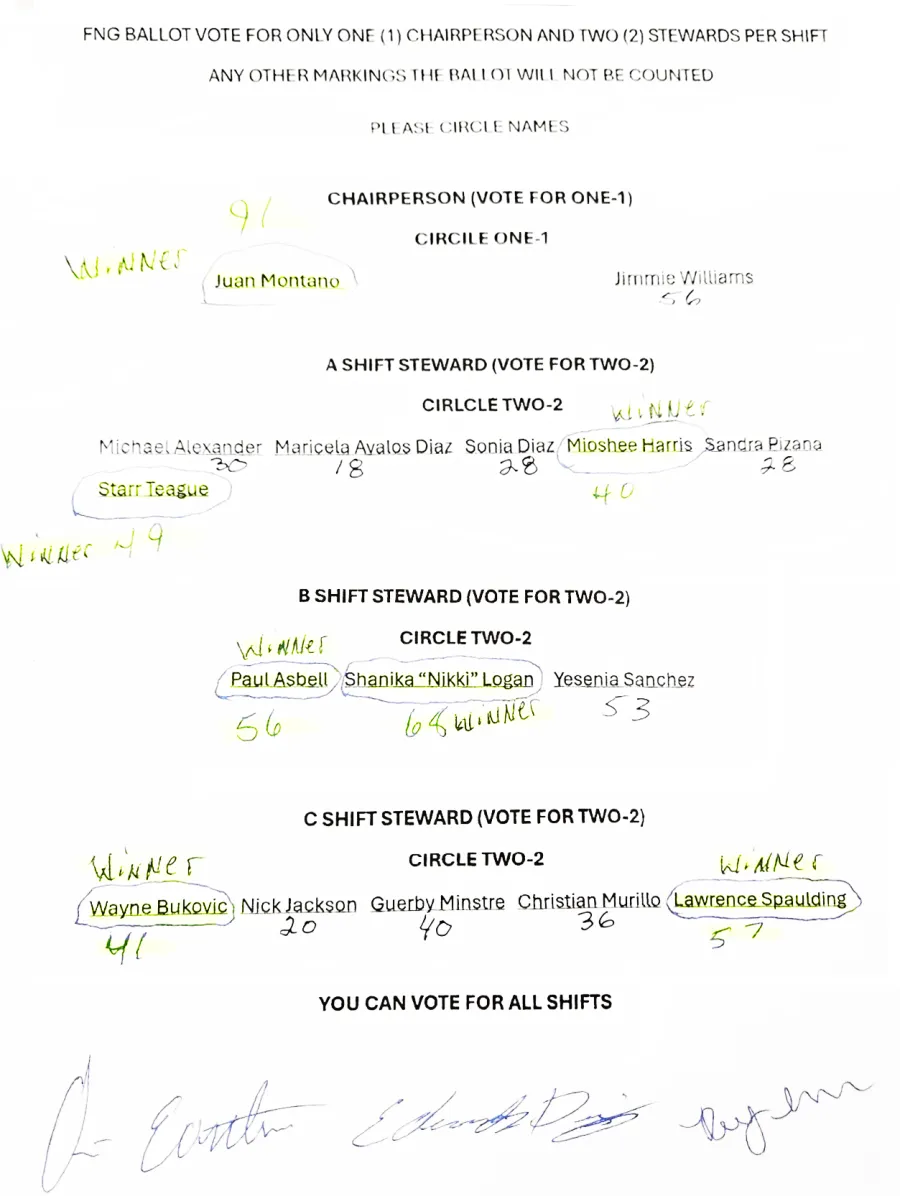 FNG BALLOT VOTE FOR ONLY ONE (1) CHAIRPERSON AND TWO (2) STEWARDS PER SHIFT
ANY OTHER MARKINGS THE BALLOT WILL NOT BE COUNTED
PLEASE CIRCLE NAMES
CHAIRPERSON (VOTE FOR ONE-1)
91
CIRCILE ONE-1
WiNNer
Juan Montano Jimmie Williams
56
A SHIFT STEWARD (VOTE FOR TWO-2)
CIRLCLE TWO-2 WiNNer
Michael Alexander Maricela Avalos Diaz Sonia Diaz Mioshee Harris Sandra Pizana
30 18 28 40 28
Starr Teague
WiNNer 49
B SHIFT STEWARD (VOTE FOR TWO-2)
WiNNer CIRCLE TWO-2
Paul Asbell Shanika “Nikki” Logan Yesenia Sanchez
56 68 WiNNer 53
C SHIFT STEWARD (VOTE FOR TWO-2)
WiNNer CIRCLE TWO-2 WiNNer
Wayne Bukovic Nick Jackson Guerby Minstre Christian Murillo Lawrence Spaulding
41 20 40 36 57
YOU CAN VOTE FOR ALL SHIFTS